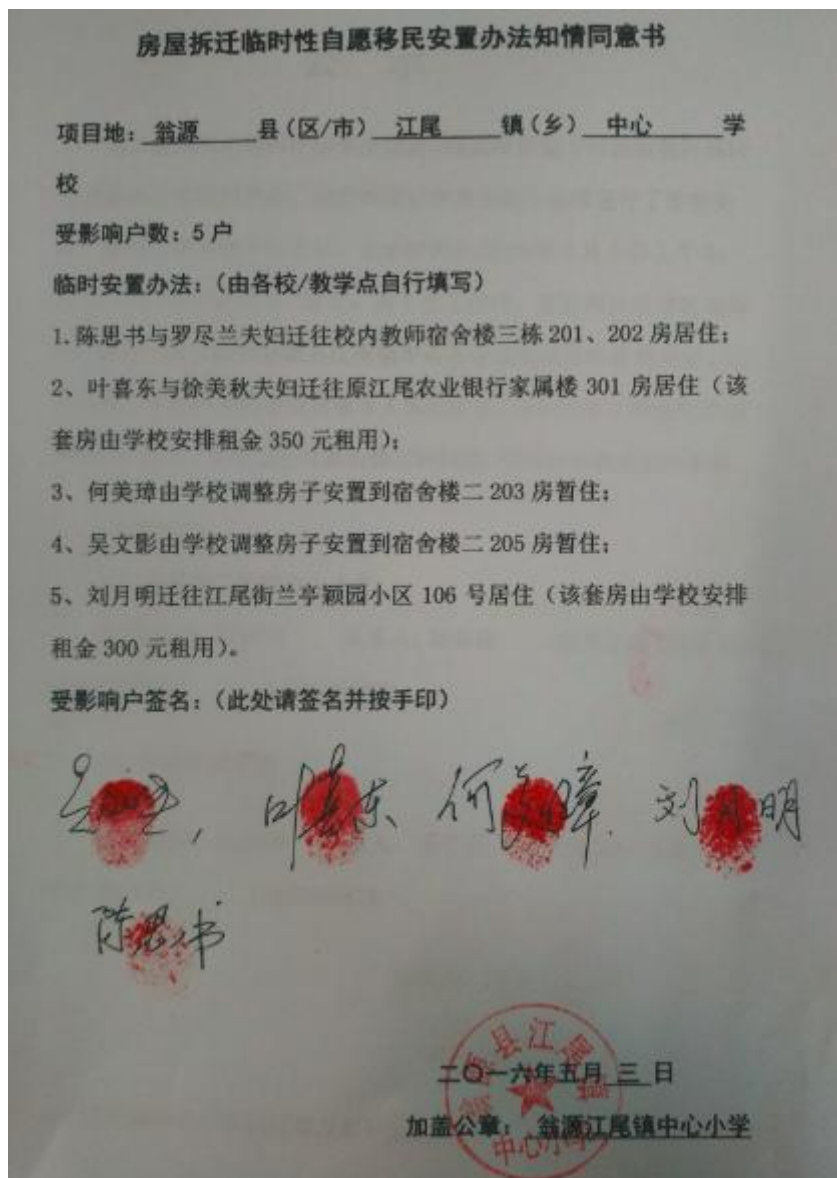 房屋拆迁临时性自愿移民安置办法知情同意书
项目地：翁源 县（区/市） 江尾 镇（乡） 中心 学
校
受影响户数：5 户
临时安置办法：（由各校/教学点自行填写）
1.陈思书与罗尽兰夫妇迁往校内教师宿舍楼三栋 201、202 房居住；
2、叶喜东与徐美秋夫妇迁往原江尾农业银行家属楼 301 房居住（该
套房由学校安排租金 350 元租用）；
3、何美璋由学校调整房子安置到宿舍楼二 203 房暂住；
4、吴文影由学校调整房子安置到宿舍楼二 205 房暂住；
5、刘月明迁往江尾街兰亭颖园小区 106 号居住（该套房由学校安排
租金 300 元租用）。
受影响户签名：（此处请签名并按手印）
叶喜东 何美璋 刘月明
陈思书
二〇一六年五月 三 日
加盖公章： 翁源江尾镇中心小学
翁源县江尾镇
中心小学